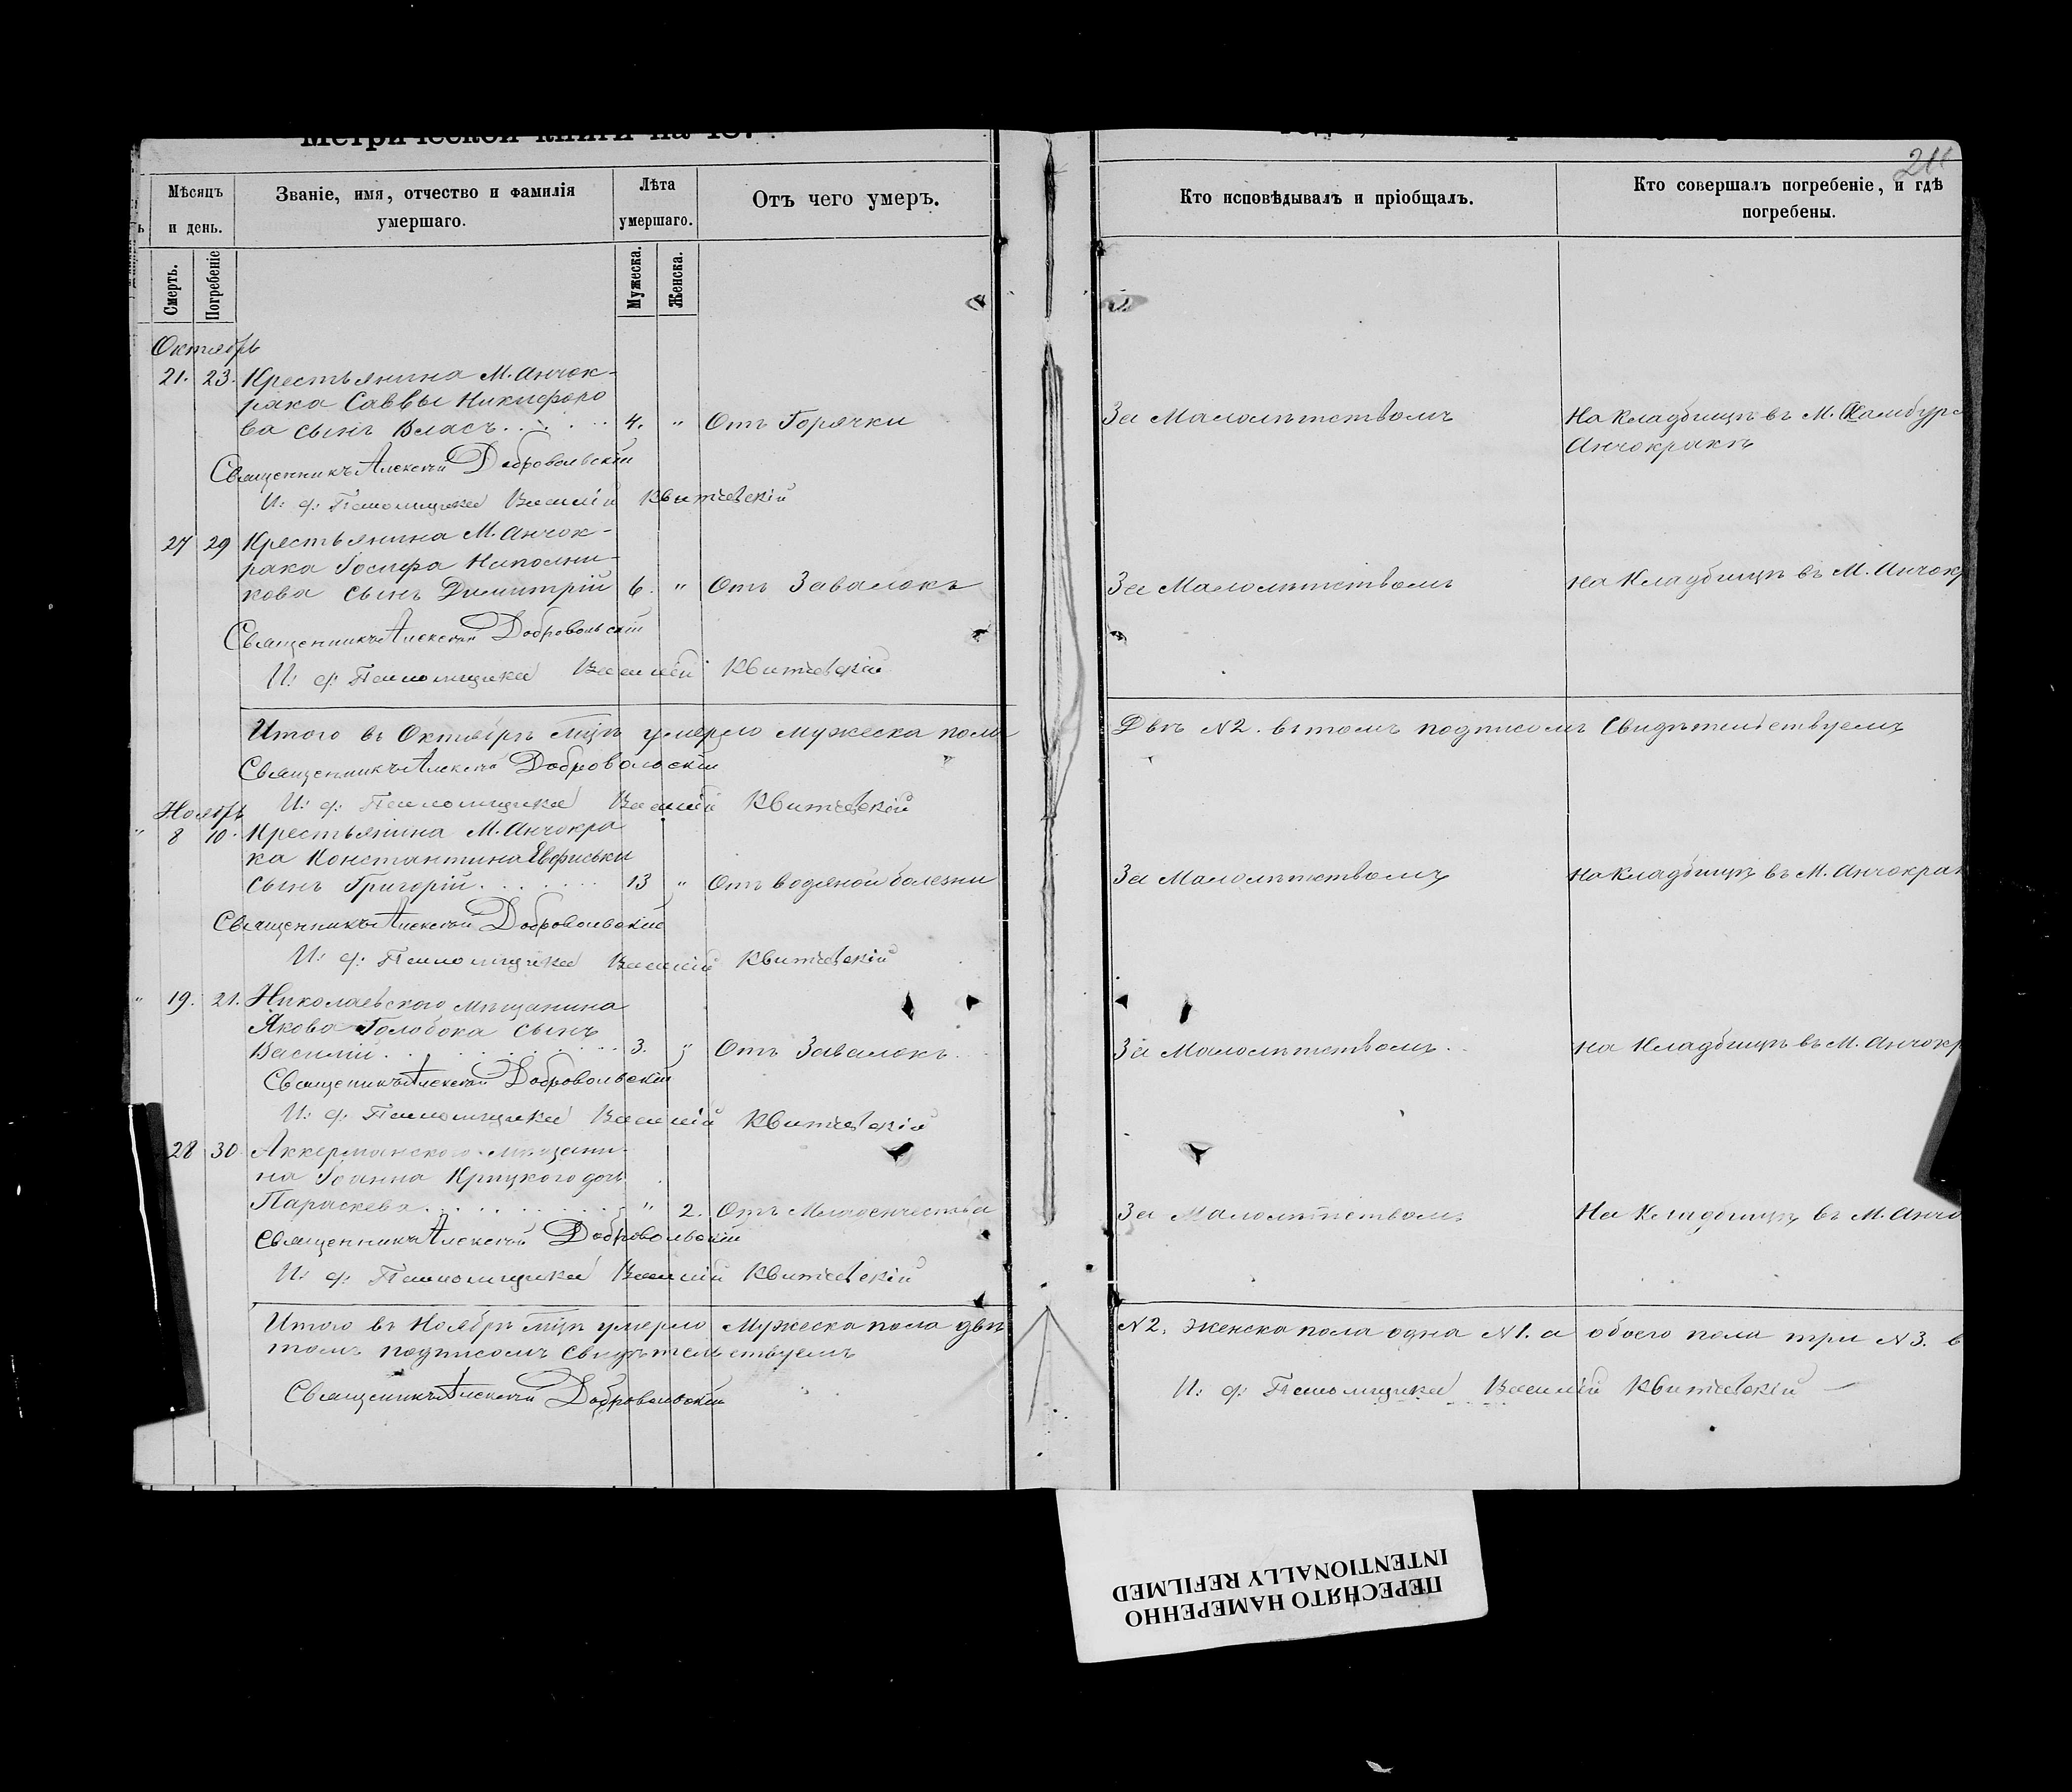 Метрической книги на 18
21
Мѣсяцъ и день.
Званіе, имя, отчество и фамилія умершаго.
Лѣта умершаго.
Отъ чего умеръ.
Кто исповѣдывалъ и пріобщалъ.
Кто совершалъ погребеніе, и гдѣ погребены.
Смерть.
Погребеніе
Мужеска.
Женска.
Октябрь
21. 23. Крестьянина М. Анчок-
рака Саввы Никифоро
ва сынъ Власъ 4. " Отъ Горячки За Малолѣтствомъ На Кладбищѣ въ М.
Анчокракѣ
Священникъ Алексѣй Добровольскій
И: ф: Псаломщика Василій Квитневскій
27 29 Крестьянина М. Анчок-
рака Іосифа
кова сынъ Димитрій 6. " Отъ Завалокъ За Малолѣтствомъ На Кладбищѣ въ М. Анчокр
Священникъ Алексѣй Добровольскій
И: ф: Псаломщика Василій Квитневскій
Итого въ Октябрѣ мцѣ умерло мужеска пола Двѣ N2. въ томъ подписомъ Свидѣтельствуемъ
Священникъ Алексѣй Добровольскій
И: ф: Псаломщика Василій Квитневскій
Ноябрь
" 8 10. Крестьянина М. Анчокра
ка Константина
сынъ Григорій 13 " Отъ водяной болезни За Малолѣтствомъ На Кладбищѣ въ М. Анчокрак
Священникъ Алексѣй Добровольскій
И: ф: Псаломщика Василій Квитневскій
" 19. 21. Николаевского мѣщанина
Якова Голобока сынъ
Василій 3. " Отъ Завалокъ За Малолѣтствомъ На Кладбищѣ въ М. Анчокр
Священикъ Алексѣй Добровольскій
И: ф: Псаломщика Василій Квитневскій
28 30 Аккерманского мѣщани-
на Іоанна Крицкого дочь
Параскева " 2. Отъ Младенчества За Малолѣтствомъ На Кладбищѣ въ М. Анчо
Священникъ Алексѣй Добровольскій
И: ф: Псаломщика Василій Квитневскій
Итого въ Ноябрѣ мцѣ умерло Мужеска пола двѣ N2. Женска пола одна N1. а обоего пола три N3. в
томъ подписомъ свидѣтельствуемъ
Священикъ Алексѣй Добровольскій И: ф: Псаломщика Василій Квитневскій
ПЕРЕСНЯТО НАМЕРЕННО
INTENTIONALLY REFILMED